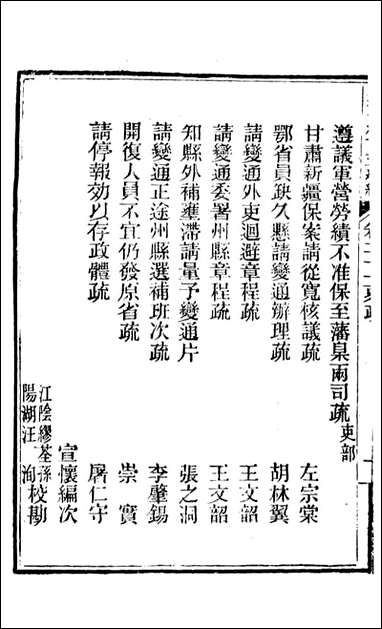 遵議軍營勞績不准保至藩臬兩司疏 吏部
甘肅新疆保案請從寬核議疏 左宗棠
鄂省員缺久懸請變通辦理疏 胡林翼
請變通外吏迴避章程疏 王文韶
請變通委署州縣章程疏 王文韶
知縣外補壅滯請量予變通片 張之洞
請變通正途州縣選補班次疏 李肇錫
開復人員不宜仍發原省疏 崇實
請停報効以存政體疏 屠仁守
宣懷編次
江陰繆荃孫
陽湖汪洵校勘